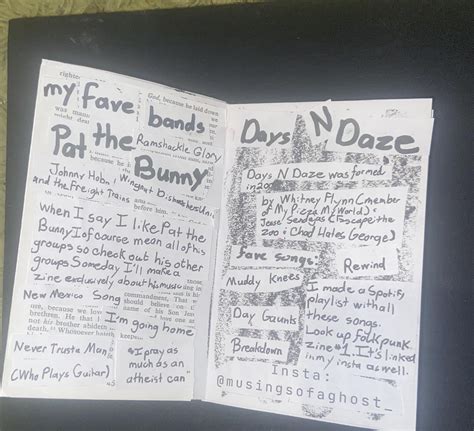 my fave bands
Ramshackle Glory
Pat the Bunny
Johnny Hobo
and the Freight Trains
Wingnut Dishwashers Union
When I say I like Pat the
Bunny I of course mean all of his
groups so check out his other
groups Someday I'll make a
zine exclusively about his music
New Mexico Song
I'm going home
Never Trust a Man
(Who Plays Guitar)
"I pray as
much as an
atheist can"
God, because he laid down
because he
before him.
commandment. That
should believe
of his Son
because we
not his brother abideth
death.
Whosoever
Days N Daze
Days N Daze was formed
in
by Whitney Flynn (member
of My Pizza My World) &
Jesse Sendejas (Escape the
Zoo & Chad Hates George)
fave songs:
Rewind
Muddy Knees
Day Gaunts
Breakdown
I made a Spotify
playlist with all
these songs.
Look up Folkpunk
zine #1. It's linked
in my insta as well.
Insta:
@musingsofaghost_